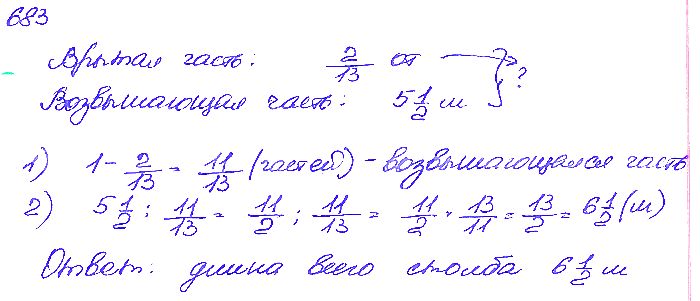 683
Врытая часть: 2/13 от ?
Возвышающая часть: 5 1/2 м
1) 1 - 2/13 = 11/13 (частей) - возвышающаяся часть
2) 5 1/2 : 11/13 = 11/2 : 11/13 = 11/2 · 13/11 = 13/2 = 6 1/2 (м)
Ответ: длина всего столба 6 1/2 м